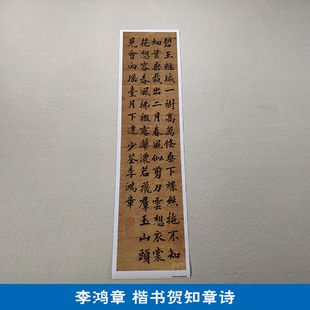 碧玉粧成一樹高萬條垂下綠絲絛不知
細葉誰裁出二月春風似剪刀雲想衣裳
花想容春風拂檻露華濃若非羣玉山頭
見會向瑤臺月下逢少荃李鴻章
李鸿章 楷书贺知章诗